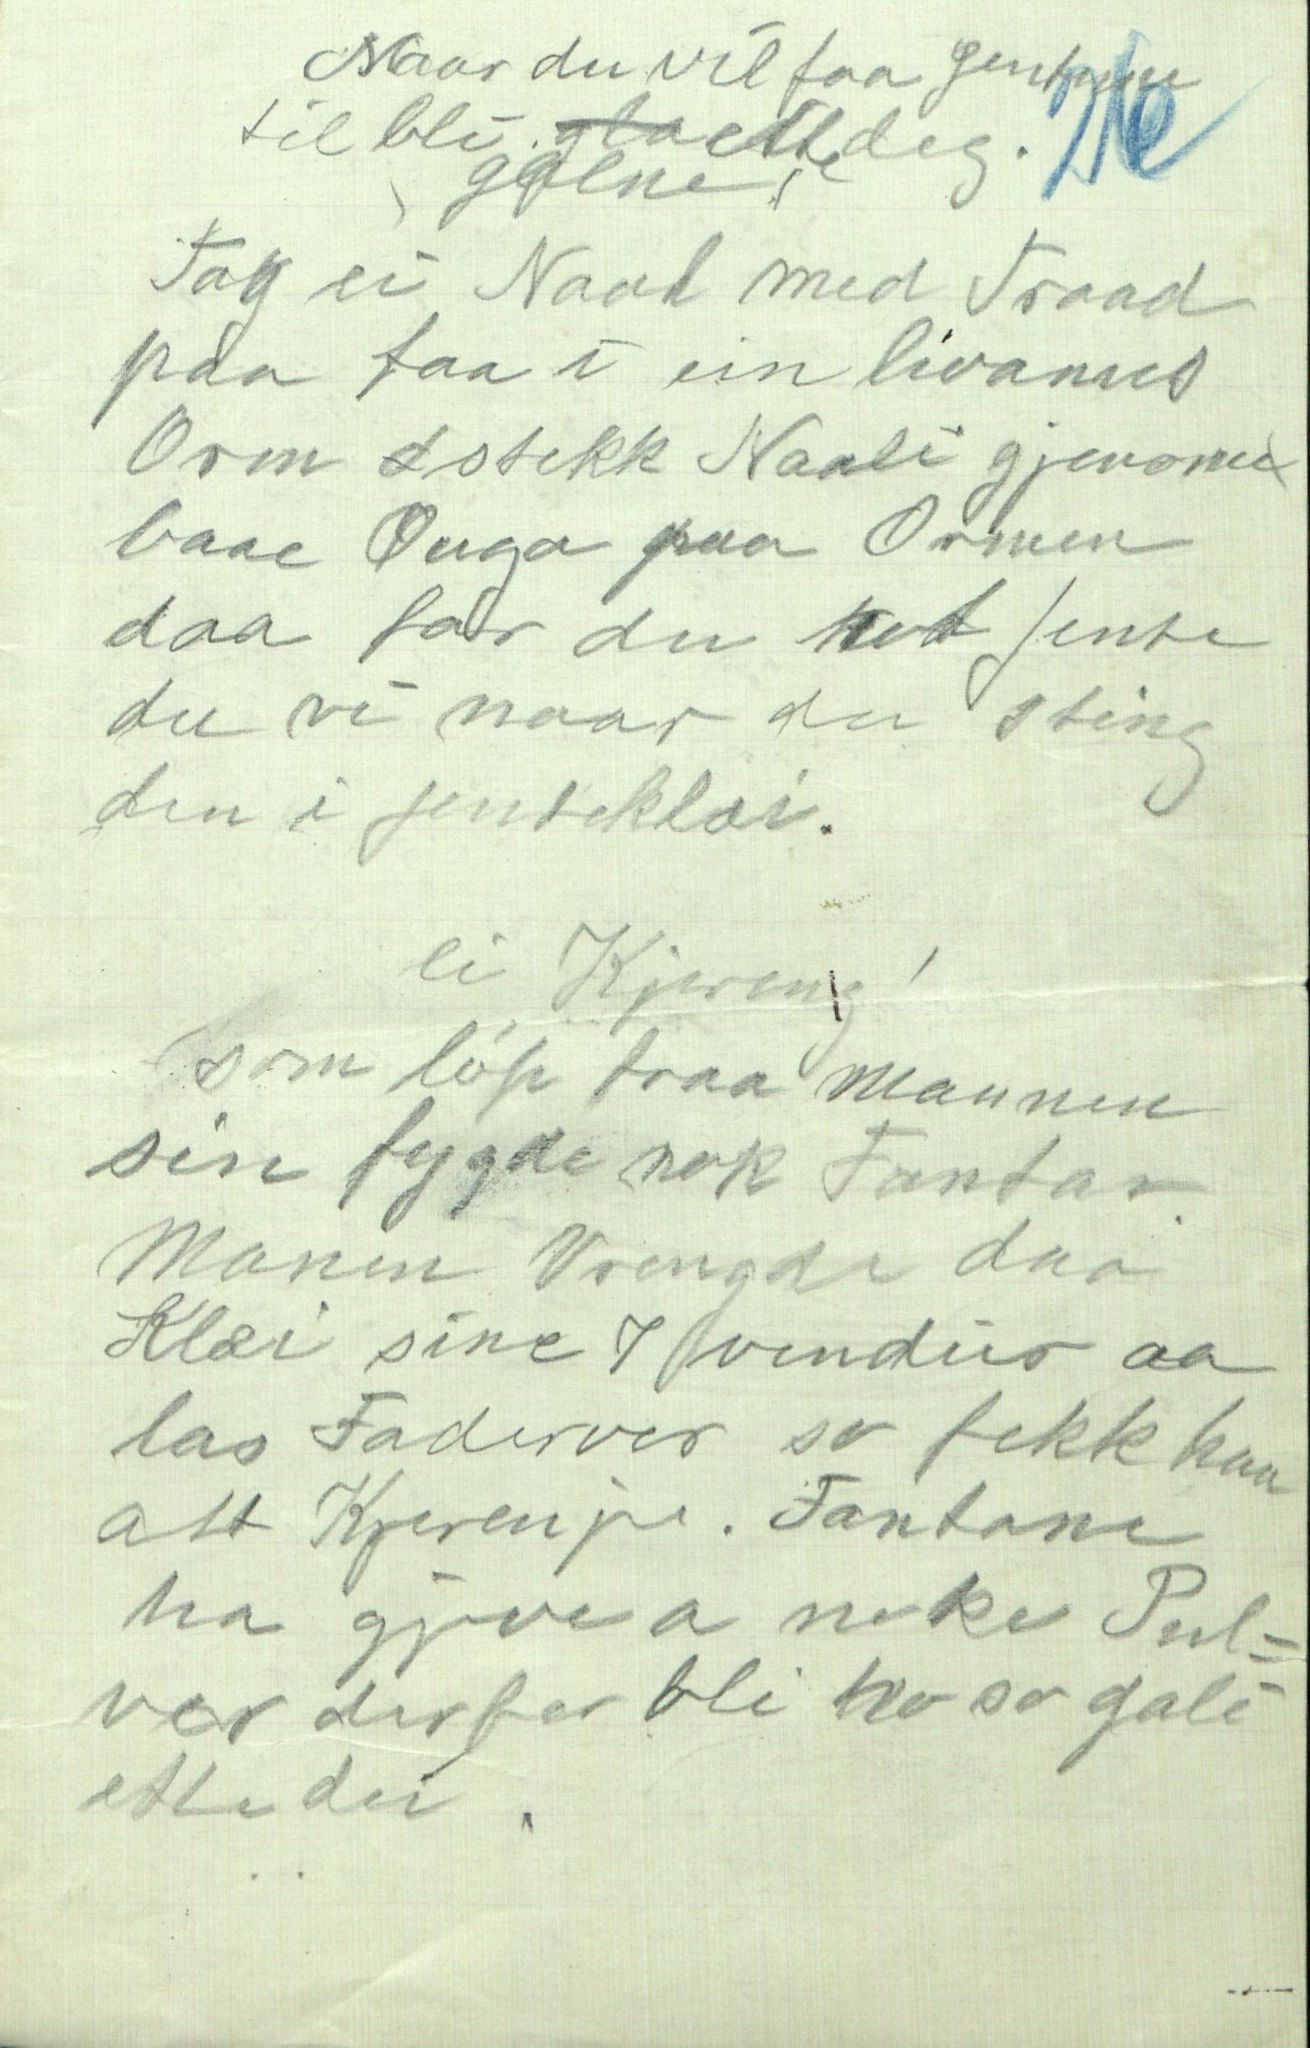 Naar du vil faa gentune
til bli glae ette deg.
galne
Tag ei Naal med Traad
paa faa i ein livanues
Orm & stekk Naali gjenom
baae Ouga paa Ormen
daa far du kot Jente
du vi naar du sting
den i jenteklæi.
ei Kjereng!
som löp fraa Mannen
sin fygde nok Fantar.
Manen Vrengde daa
Klæi sine 7 vendur aa
las Fadervor so fekk han
att Kjerenje. Fantane
ha gjeve a noke Pul=
ver derfor bli ho so gali
ette dei.